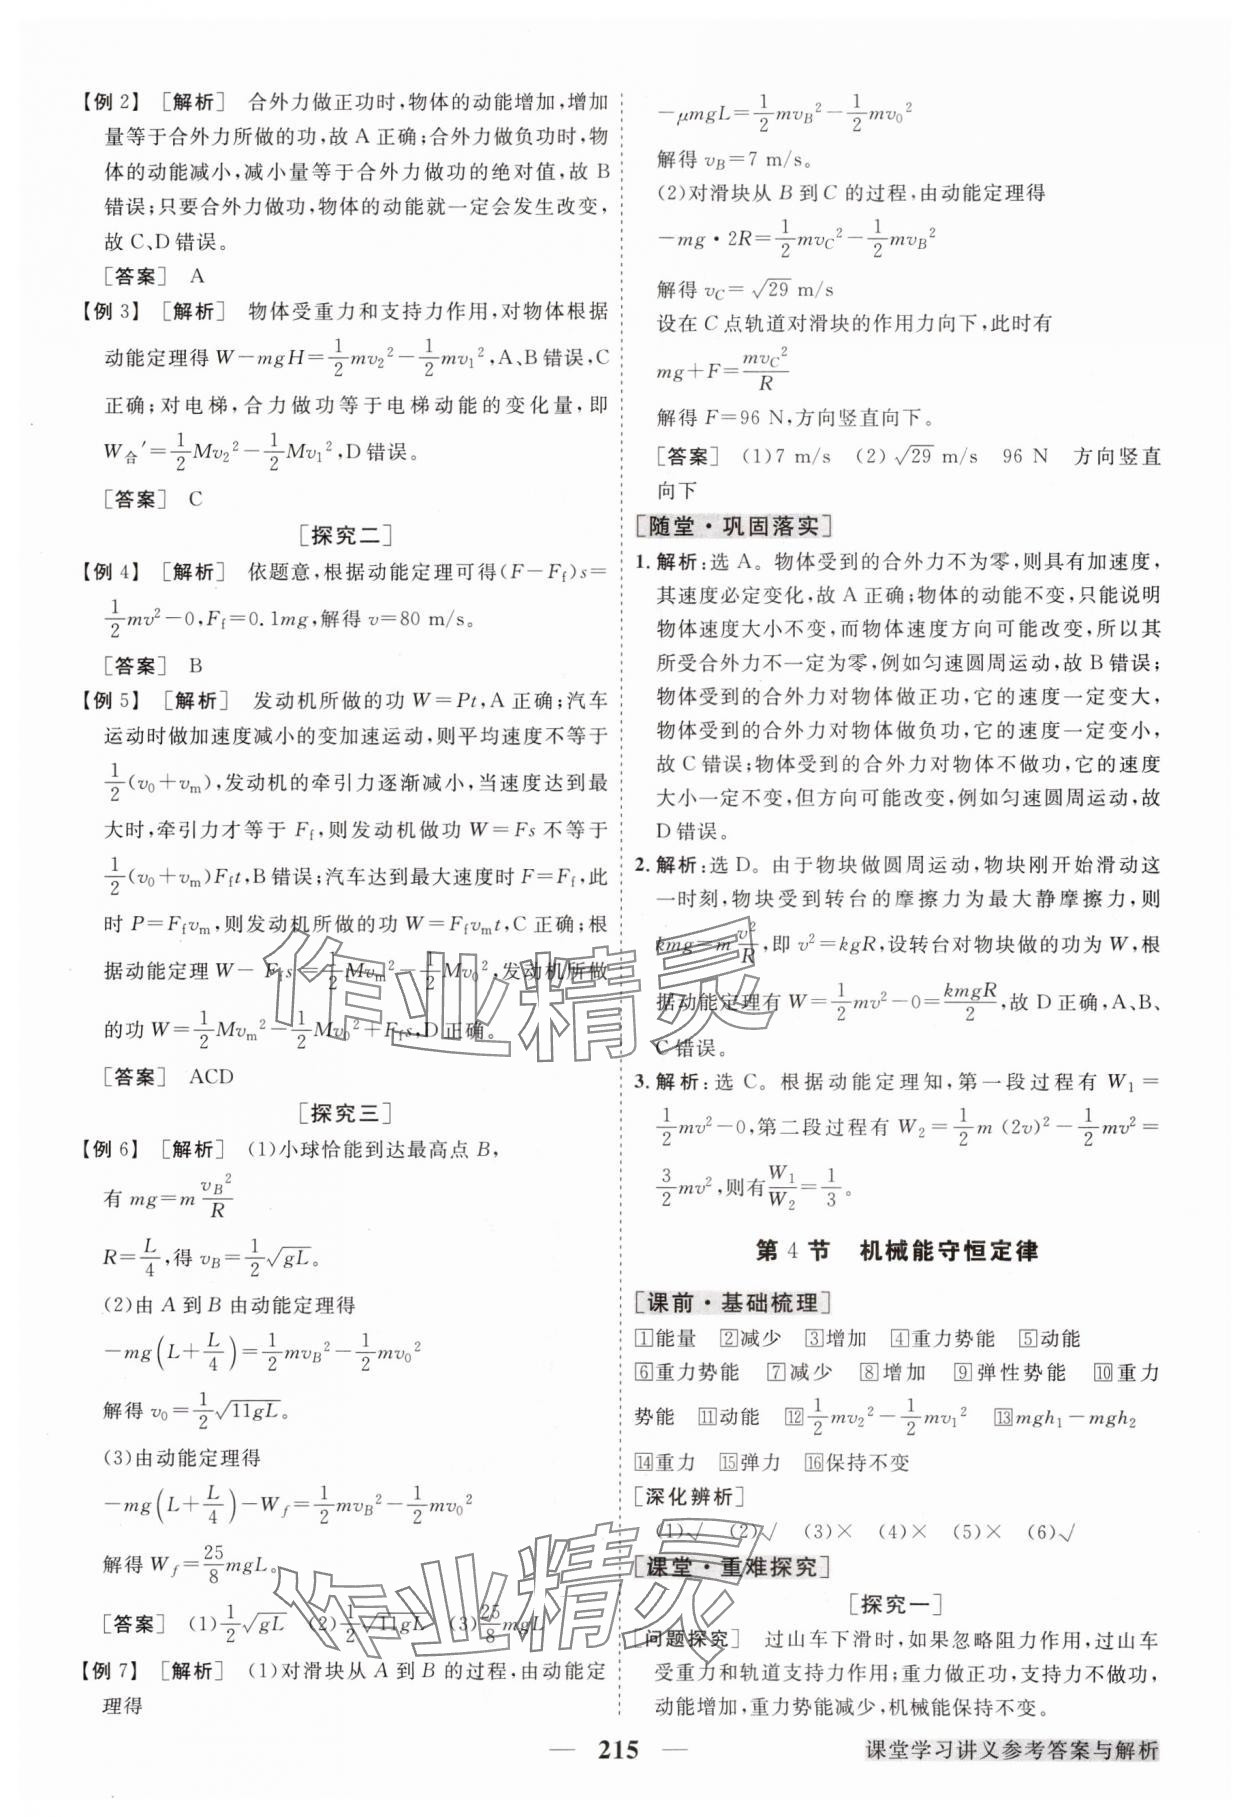 【例 2】 [解析] 合外力做正功时,物体的动能增加,增加
量等于合外力所做的功,故 A 正确;合外力做负功时,物
体的动能减小,减小量等于合外力做功的绝对值,故 B
错误;只要合外力做功,物体的动能就一定会发生改变,
故 C、D 错误。
[答案] A
【例 3】 [解析] 物体受重力和支持力作用,对物体根据
动能定理得 W－mgH＝1/2 mv₂²－1/2 mv₁²,A、B 错误,C
正确;对电梯,合力做功等于电梯动能的变化量,即
W合′＝1/2 Mv₂²－1/2 Mv₁²,D 错误。
[答案] C
[探究二]
【例 4】 [解析] 依题意,根据动能定理可得(F－Ff)s＝
1/2 mv²－0,Ff＝0.1mg,解得 v＝80 m/s。
[答案] B
【例 5】 [解析] 发动机所做的功 W＝Pt,A 正确;汽车
运动时做加速度减小的变加速运动,则平均速度不等于
1/2 (v₀＋vm),发动机的牵引力逐渐减小,当速度达到最
大时,牵引力才等于 Ff,则发动机做功 W＝Fs 不等于
1/2 (v₀＋vm)Fft,B 错误;汽车达到最大速度时 F＝Ff,此
时 P＝Ffvm,则发动机所做的功 W＝Ffvmt,C 正确;根
据动能定理 W－Ffs＝1/2 Mvm²－1/2 Mv₀²,发动机所做
的功 W＝1/2 Mvm²－1/2 Mv₀²＋Ffs,D 正确。
[答案] ACD
[探究三]
【例 6】 [解析] (1)小球恰能到达最高点 B,
有 mg＝m vB²/R
R＝L/4,得 vB＝1/2 √gL。
(2)由 A 到 B 由动能定理得
－mg(L＋L/4)＝1/2 mvB²－1/2 mv₀²
解得 v₀＝1/2 √11gL。
(3)由动能定理得
－mg(L＋L/4)－Wf＝1/2 mvB²－1/2 mv₀²
解得 Wf＝25/8 mgL。
[答案] (1)1/2 √gL (2)1/2 √11gL (3)25/8 mgL
【例 7】 [解析] (1)对滑块从 A 到 B 的过程,由动能定
理得
－μmgL＝1/2 mvB²－1/2 mv₀²
解得 vB＝7 m/s。
(2)对滑块从 B 到 C 的过程,由动能定理得
－mg·2R＝1/2 mvC²－1/2 mvB²
解得 vC＝√29 m/s
设在 C 点轨道对滑块的作用力向下,此时有
mg＋F＝mvC²/R
解得 F＝96 N,方向竖直向下。
[答案] (1)7 m/s (2)√29 m/s 96 N 方向竖直
向下
[随堂·巩固落实]
1. 解析:选 A。物体受到的合外力不为零,则具有加速度,
其速度必定变化,故 A 正确;物体的动能不变,只能说明
物体速度大小不变,而物体速度方向可能改变,所以其
所受合外力不一定为零,例如匀速圆周运动,故 B 错误;
物体受到的合外力对物体做正功,它的速度一定变大,
物体受到的合外力对物体做负功,它的速度一定变小,
故 C 错误;物体受到的合外力对物体不做功,它的速度
大小一定不变,但方向可能改变,例如匀速圆周运动,故
D 错误。
2. 解析:选 D。由于物块做圆周运动,物块刚开始滑动这
一时刻,物块受到转台的摩擦力为最大静摩擦力,则
kmg＝m v²/R,即 v²＝kgR,设转台对物块做的功为 W,根
据动能定理有 W＝1/2 mv²－0＝kmgR/2,故 D 正确,A、B、
C 错误。
3. 解析:选 C。根据动能定理知,第一段过程有 W₁＝
1/2 mv²－0,第二段过程有 W₂＝1/2 m (2v)²－1/2 mv²＝
3/2 mv²,则有 W₁/W₂＝1/3。
第 4 节 机械能守恒定律
[课前·基础梳理]
1能量 2减少 3增加 4重力势能 5动能
6重力势能 7减少 8增加 9弹性势能 10重力
势能 11动能 12 1/2 mv₂²－1/2 mv₁² 13mgh₁－mgh₂
14重力 15弹力 16保持不变
[深化辨析]
(1)√ (2)√ (3)× (4)× (5)× (6)√
[课堂·重难探究]
[探究一]
[问题探究] 过山车下滑时,如果忽略阻力作用,过山车
受重力和轨道支持力作用;重力做正功,支持力不做功,
动能增加,重力势能减少,机械能保持不变。
— 215 —
课堂学习讲义参考答案与解析
作业精灵
作业精灵